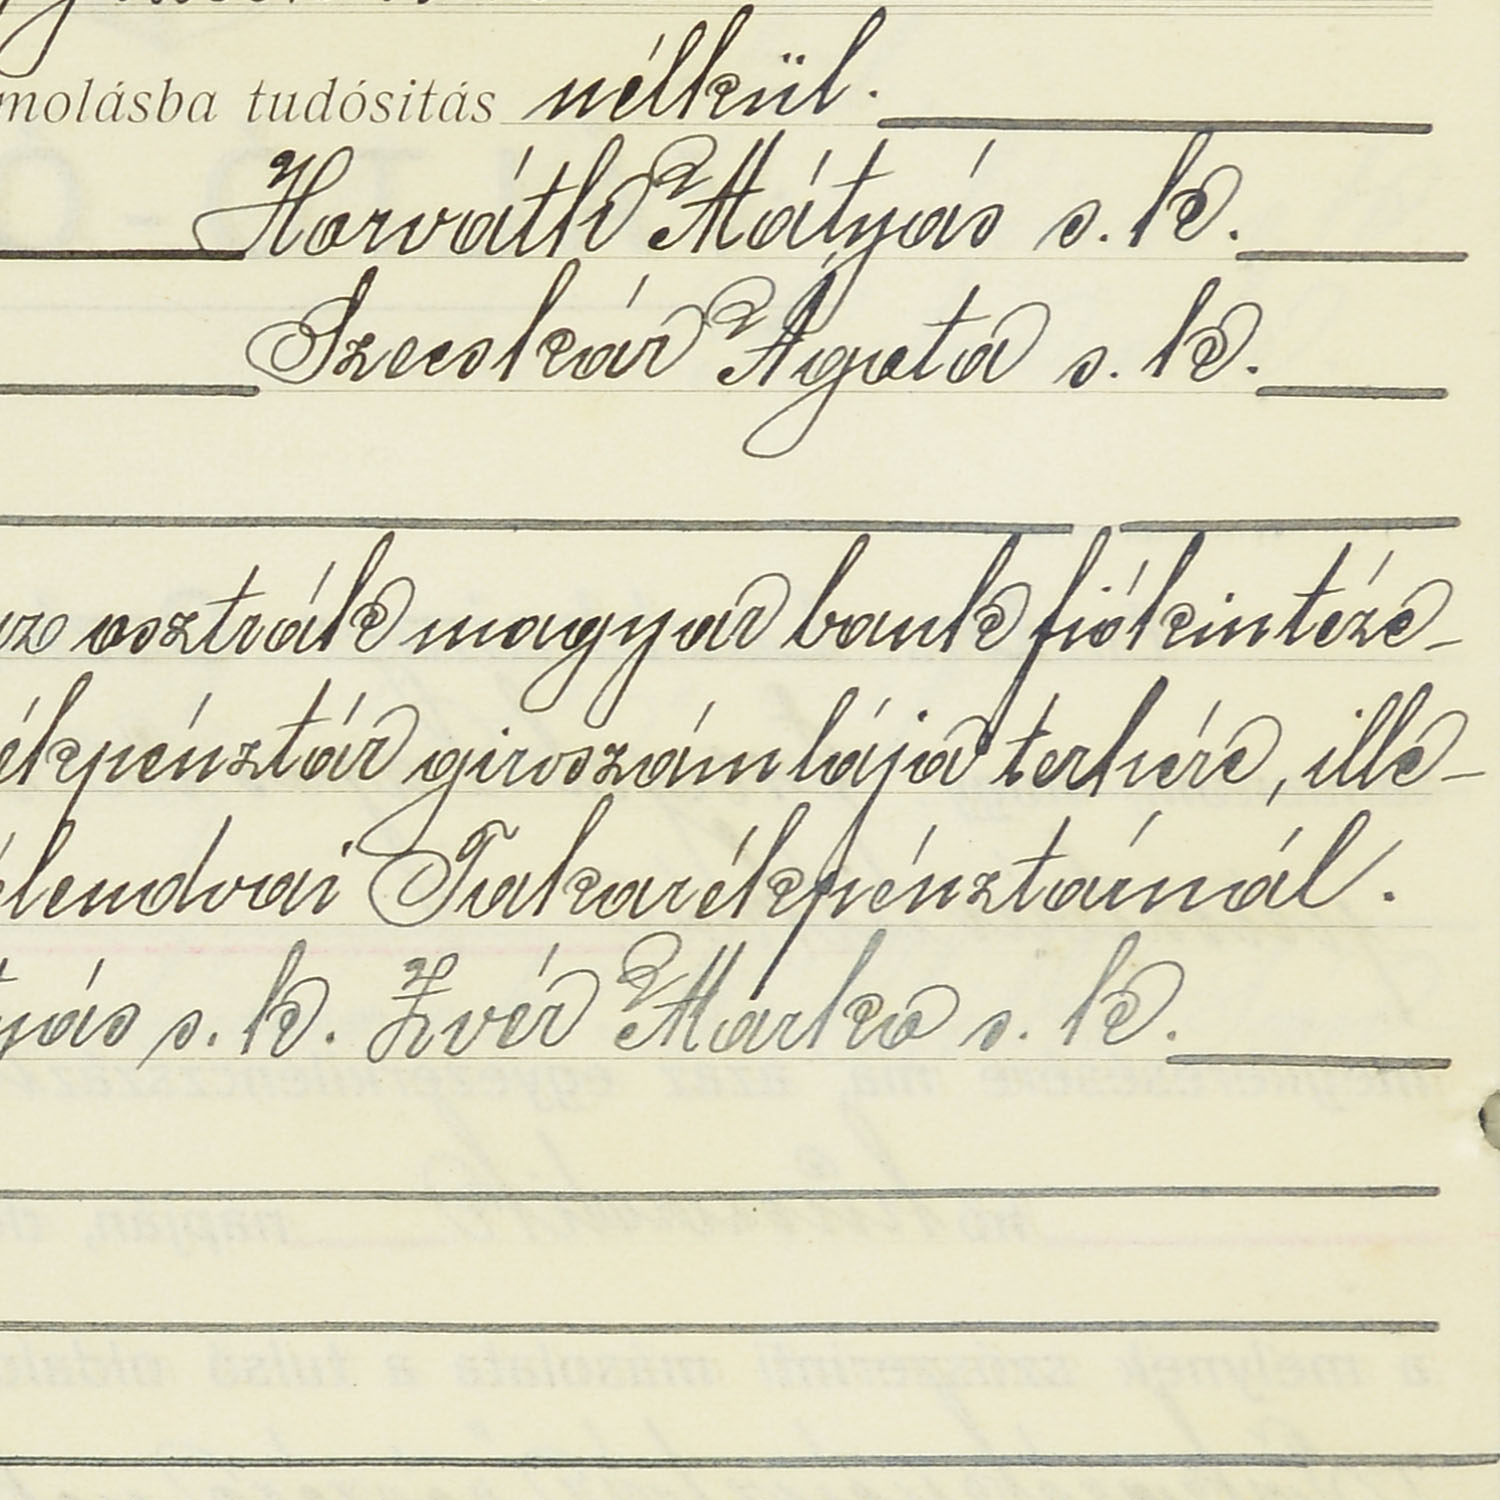 molásba tudósitás nélkül.
Horváth Mátyás s. k.
Szecskár Ágota s. k.
az osztrák magyar bank fiókintéze-
ékpénztár giroszámlája terhére, ille-
lendvai Takarékpénztárnál.
yás s. k. Zvér Márko s. k.